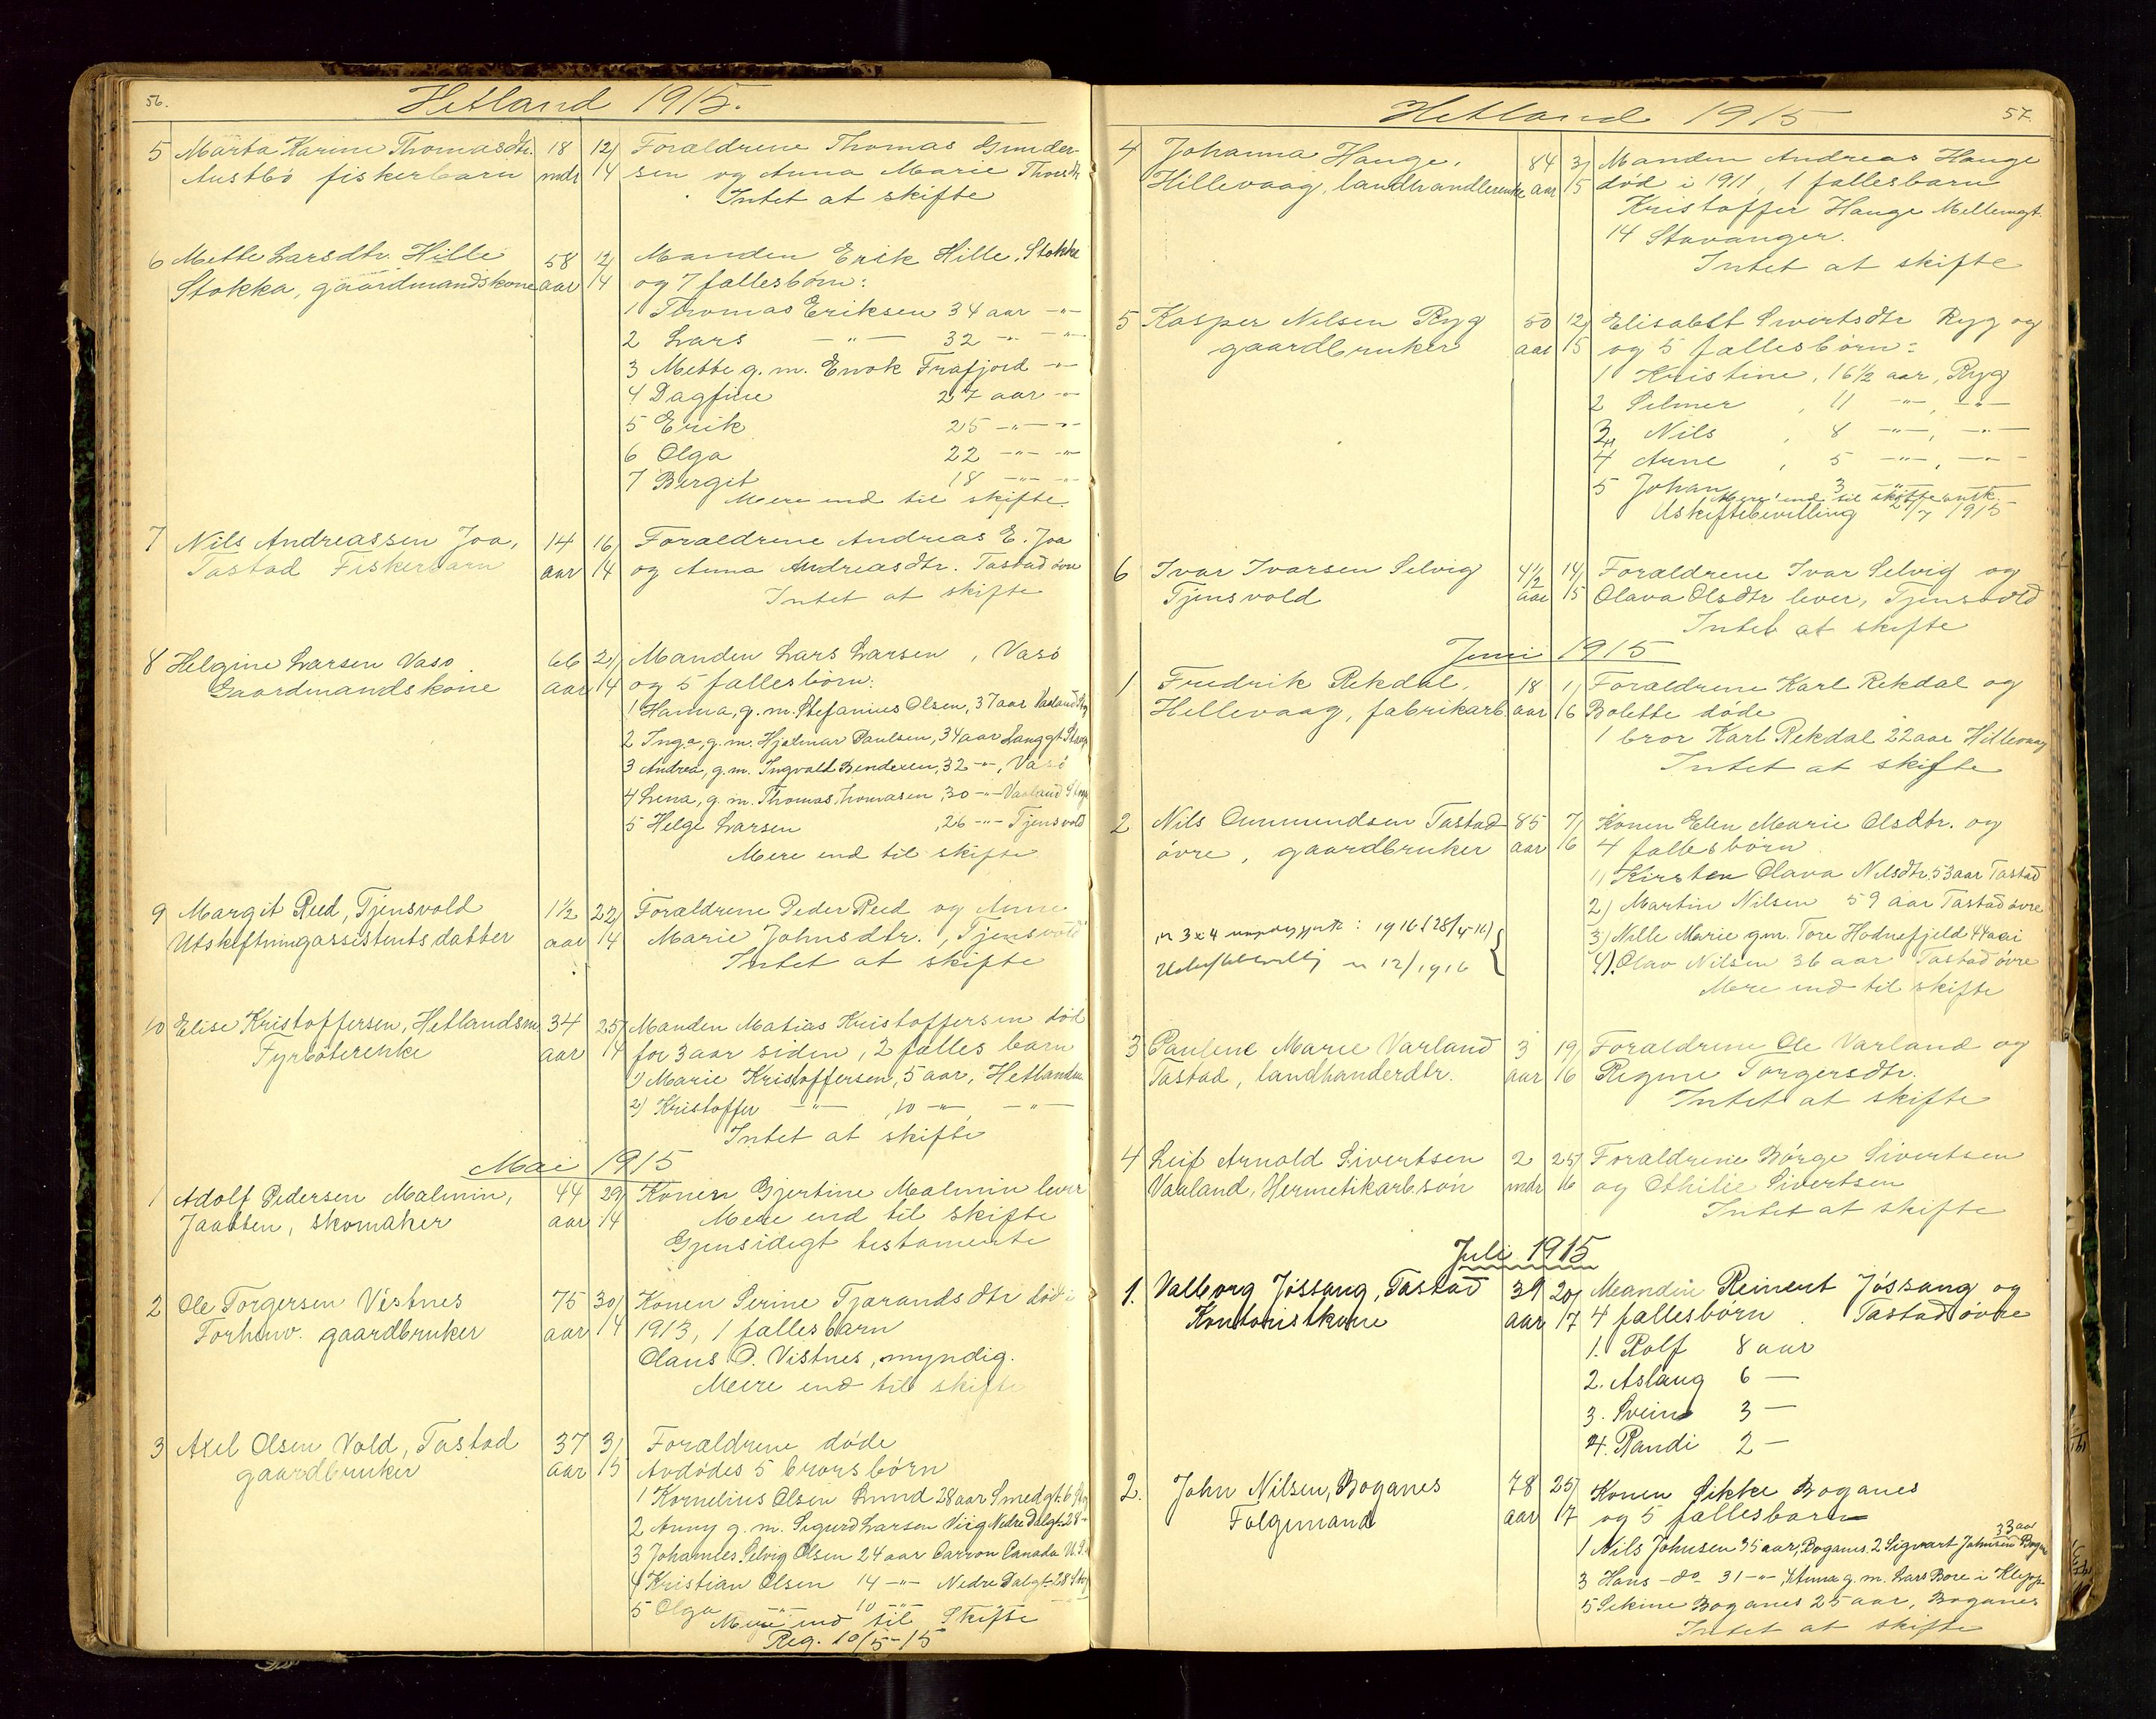 56.
Hetland 1915.
5 Marta Karine Thomasdtr. 18 12/ Foraldrene Thomas Gunder-
Austbö fiskerbarn mdr 14 sen og Anna Marie Thorsdtr
Intet at skifte
6 Mette Larsdtr. Hille 58 12/ Manden Erik Hille, Stokka
Stokka, gaardmandskone aar 14 og 7 fallesbörn:
1 Thomas Eriksen 34 aar -"-
2 Lars -"- 32 -"- -"-
3 Mette g. m. Enok Frafjord -"-
4 Dagfine 27 aar -"-
5 Erik 25 -"- -"-
6 Olga 22 -"- -"-
7 Bergit 18 -"- -"-
Mere end til skifte.
7 Nils Andreassen Joa, 14 16/ Foraldrene Andreas E. Joa
Tastad Fiskerbarn aar 14 og Anna Andreasdtr. Tastad övre
Intet at skifte
8 Helgine Larsen Vasö 66 21/ Manden Lars Larsen, Vasö
Gaardmandskone aar 14 og 5 fallesbörn:
1 Hanna, g. m. Stefanius Olsen, 37 aar Vaaland Stvg
2 Inga, g. m. Hjalmar Paulsen, 34 aar Langgt. Stvgr
3 Andrea, g. m. Ingvald Bendixen, 32 -"-, Vasö
4 Lena, g. m. Thomas Thomasen, 30 -"- Vaaland Stvgr
5 Helge Larsen , 26 -"- Tjensvold
Mere end til skifte
9 Margit Reed, Tjensvold 1½ 22/ Foraldrene Peder Reed og Anne
Utskiftningassistents datter aar 14 Marie Johnsdtr., Tjensvold
Intet at skifte
10 Elise Kristoffersen, Hetlandsm 34 25/ Manden Matias Kristoffersen död
Fyrböterenke aar 14 for 3 aar siden, 2 falles barn
1) Marie Kristoffersen, 5 aar, Hetlandsm
2) Kristoffer -"- , 10 -"-, -"-
Intet at skifte
Mai 1915
1 Adolf Pedersen Malmin, 44 29/ Konen Gjertine Malmin lever
Jaatten, skomaker aar 14 Mere end til skifte
Gjensidigt testamente
2 Ole Torgersen Vistnes 75 30/ Konen Serine Tjarandsdtr död i
Forhenv. gaardbruker aar 14 1913, 1 fallesbarn
Claus O. Vistnes, myndig.
Mere end til skifte
3 Axel Olsen Vold, Tastad 37 3/ Foraldrene döde
gaardbruker aar 15 Avdödes 5 brorsbörn
1 Kornelius Olsen Bund 28 aar Smedgt. 6 Stvg
2 Anny g. m. Sigurd Larsen Viig Nedre Dalgt. 28 -"-
3 Johannes Selvig Olsen 24 aar Carron Canada U.S.
4 Kristian Olsen 14 -"- Nedre Dalgt. 28 Stvg
5 Olga -"- 10 -"-
Mere end til Skifte
Reg. 10/5-15
57.
Hetland 1915
4 Johanna Hauge, 84 3/ Manden Andreas Hauge
Hillevaag, landhandlerenke aar 15 död i 1911, 1 fallesbarn
Kristoffer Hauge Mellemgt.
14 Stavanger.
Intet at skifte
5 Kasper Nilsen Ryg 50 12/ Elisabet Sivertsdtr Ryg og
gaardbruker aar 15 og 5 fallesbörn:
1 Kristine, 16½ aar, Ryg
2 Selmer , 11 -"-, -"-
3 Nils , 8 -"-, -"-
4 Arne , 5 -"-, -"-
5 Johan 3 -"-
Mere end til skifte
Uskiftebevilling 24/7 1915
6 Ivar Ivarsen Selvig 4½ 14/ Foraldrene Ivar Selvig og
Tjensvold aar 15 Olava Olsdtr lever, Tjensvold
Intet at skifte
Juni 1915
1 Fredrik Rekdal, 18 1/ Foraldrene Karl Rekdal og
Hellevaag, fabrikarb. aar 16 Bolette döde
1 bror Karl Rekdal 22 aar Hillevaag
Intet at skifte
2 Nils Ommundsen Tastad 85 7/ Konen Elen Marie Olsdtr. og
övre, gaardbruker aar 16 4 fallesbörn
1) Kirsten Olava Nilsdtr. 53 aar Tastad
2) Martin Nilsen 59 aar Tastad övre
3) Nille Marie g.m. Tore Hodnefjeld 44 aar
4) Olav Nilsen 36 aar Tastad övre
Mere end til skifte
3 x 4 1916 (28/4-16)
12/1916
3 Pauline Marie Varland 3 19/ Foraldrene Ole Varland og
Tastad, landhanderdtr. aar 16 Regine Torgersdtr.
Intet at skifte
4 Leif Arnold Sivertsen 2 25/ Foraldrene Börge Sivertsen
Vaaland, Hermetikarb. sön mdr 16 og Othilie Sivertsen
Intet at skifte
Juli 1915
1. Valborg Jössang, Tastad 39 20/ Manden Reinert Jössang og
Kontoristkone aar 17 4 fallesbörn Tastad övre
1. Rolf 8 aar
2. Aslaug 6 —
3. Svein 3 —
4. Randi 2 —
2. John Nilsen, Boganes 78 25/ Konen Sikke Boganes
Folgemand aar 17 og 5 fallesbarn
33 aar
1 Nils Johnsen 35 aar, Boganes. 2 Sigvart Johnsen Bogns
3 Hans - do - 31 -"-, 4 Anna g. m. Lars Bore i Klepp
5 Sekine Boganes 25 aar, Boganes
Intet at skifte